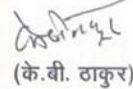 (के.बी. ठाकुर)